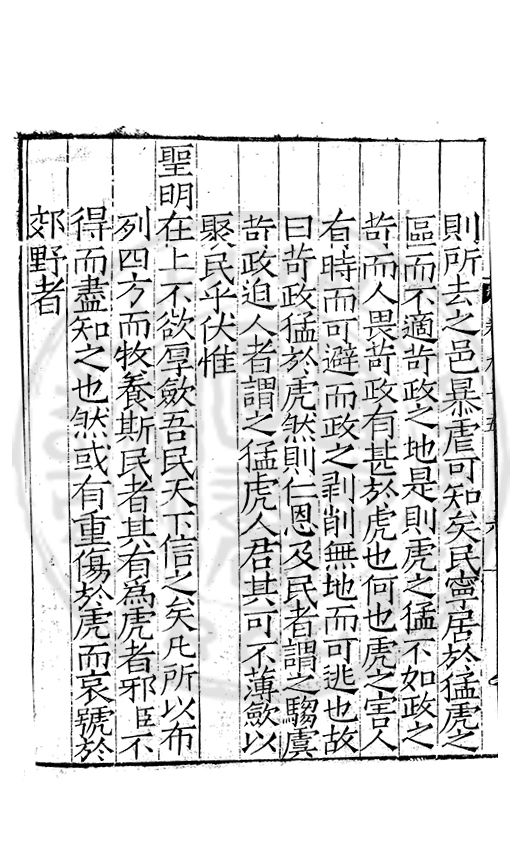 則所去之邑暴虐可知矣民寧居於猛虎之
區而不適苛政之地是則虎之猛不如政之
苛而人畏苛政有甚於虎也何也虎之害人
有時而可避而政之剥削無地而可逃也故
曰苛政猛於虎然則仁恩及民者謂之騶虞
苛政迫人者謂之猛虎人君其可不薄斂以
聚民乎伏惟
聖明在上不欲厚斂吾民天下信之矣凡所以布
列四方而牧養斯民者其有為虎者邪臣不
得而盡知之也然或有重傷於虎而哀號於
郊野者